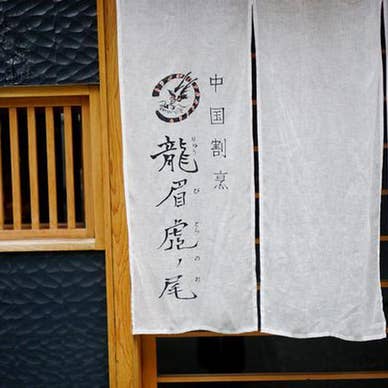 中国割烹
龍眉虎ノ尾
りゅう び とら の お